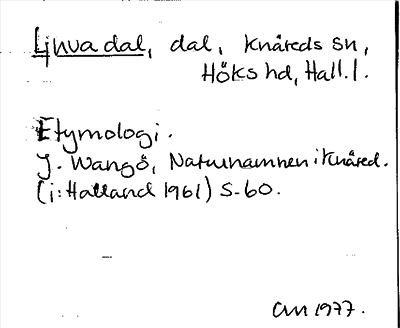 Ljnva dal, dal, Knäreds sn,
Höks hd, Hall. l.
Etymologi.
J. Wangö, Naturnamnen i Knäred.
(i: Halland 1961) S. 60.
1977.